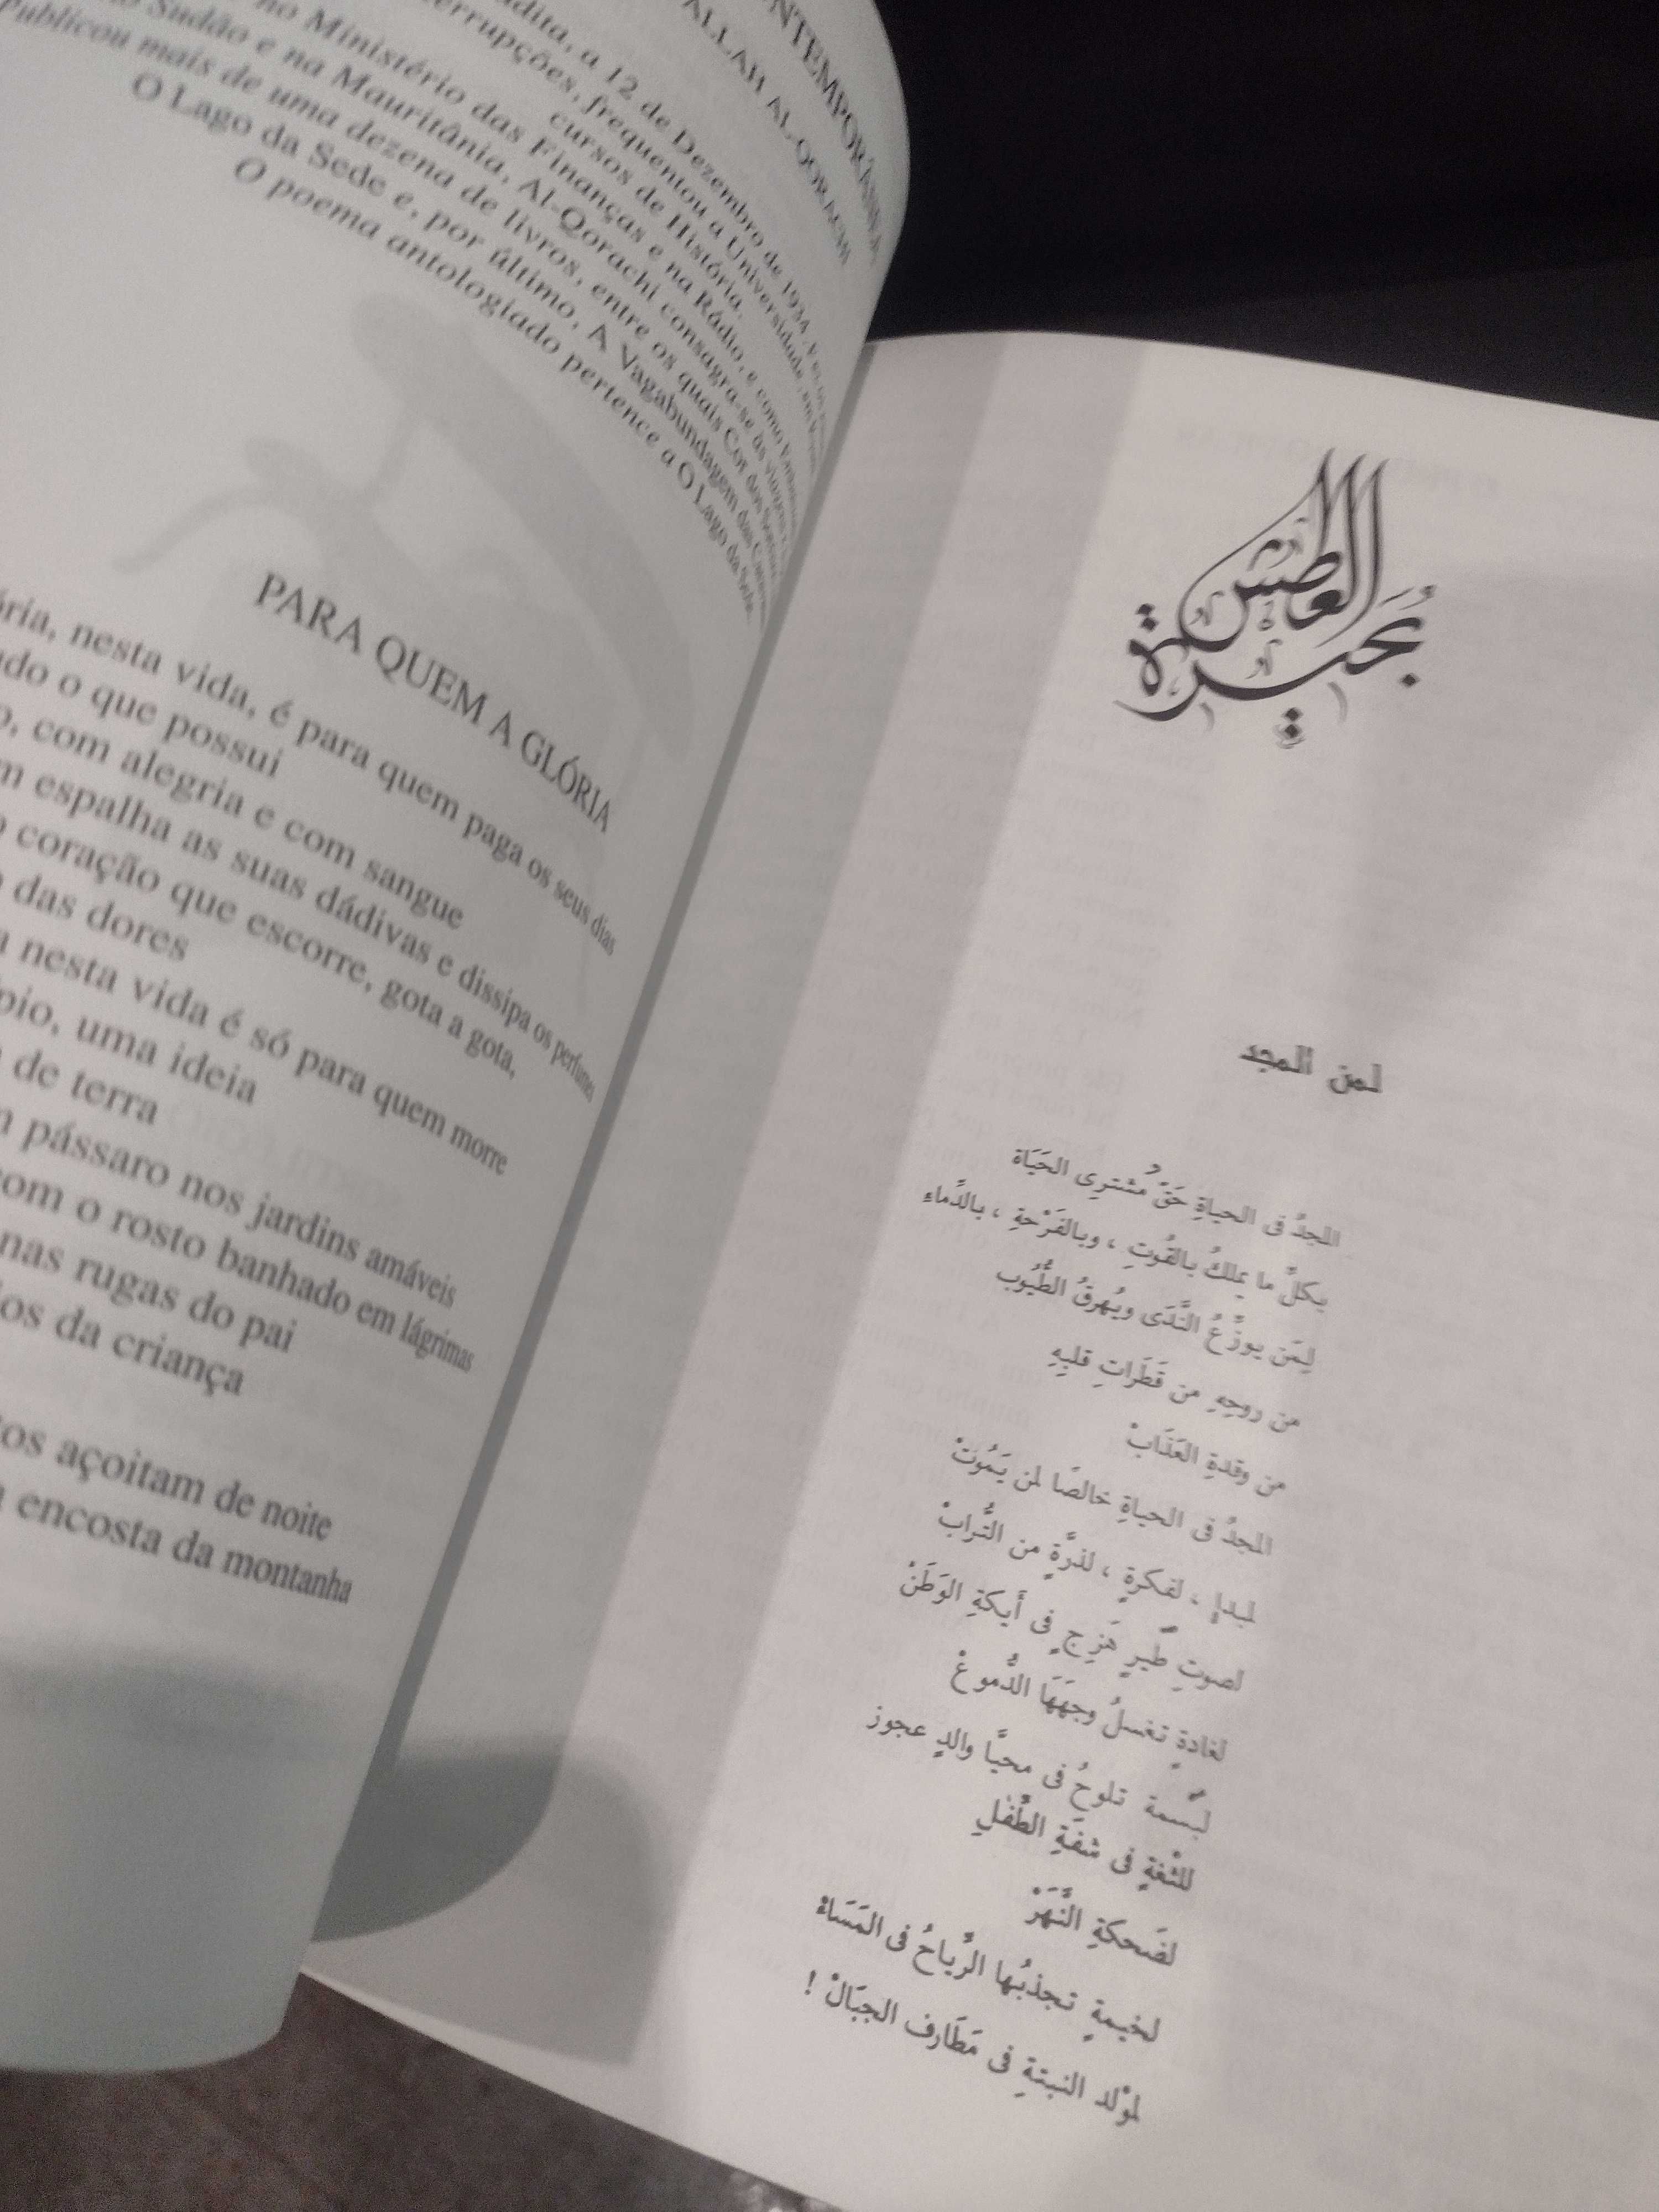 ONTEMPORÂNEA
ALLAH AL-QORACHI
udita, a 12 de Dezembro de 1934.
errupções, frequentou a Universidade, em
cursos de História.
no Ministério das Finanças e na Rádio, e como
o Sudão e na Mauritânia, Al-Qorachi consagra-se às
Publicou mais de uma dezena de livros, entre os quais Cor dos
O Lago da Sede e, por último, A Vagabundagem das
O poema antologiado pertence a O Lago da Sede.
PARA QUEM A GLÓRIA
ória, nesta vida, é para quem paga os seus dias
ndo o que possui
o, com alegria e com sangue
m espalha as suas dádivas e dissipa os perfumes
o coração que escorre, gota a gota,
o das dores
a nesta vida é só para quem morre
pio, uma ideia
de terra
m pássaro nos jardins amáveis
com o rosto banhado em lágrimas
nas rugas do pai
ios da criança
tos açoitam de noite
a encosta da montanha
بُحيرة
العطش
لمن المجد
المجدُ فى الحياةِ حَقّ مُشترِى الحَيَاة
بكلِّ ما يملكُ بالقُوتِ ، وبالفَرْحةِ ، بالدِّماءِ
لِمَن يوزِّعُ النَّدَى ويُهرقُ الطُّيُوب
من روحِهِ من قَطَراتِ قلبِهِ
من وقدةِ العَذَابْ
المجدُ فى الحياةِ خالصًا لمن يَمُوتْ
لمبدإٍ ، لفكرةٍ ، لذرَّةٍ من التُّرابْ
لصوتِ طَيرٍ هَزِجٍ فى أيكةِ الوَطَنْ
لغادةٍ تغسلُ وجهَهَا الدُّموعْ
لبَسمة تلوحُ فى محيَّا والدٍ عجوز
للثْغةٍ فى شفَةِ الطِّفْلِ
لضَحكةِ النَّهَرْ
لخيمةٍ تجذبُها الرِّياحُ فى المَسَاءْ
لموْلد النبتةِ فى مَطَارف الجبَالْ !